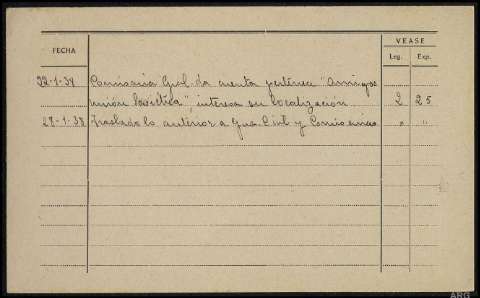 FECHA VEASE
Leg. Exp.
22-1-38 Comisaria Gral. da cuenta pertenece "Amigos
unión Sovietica", interesa su localización 2 25
28-1-38 Traslado lo anterior a Gua. Civil y Comisarias " "
ARG